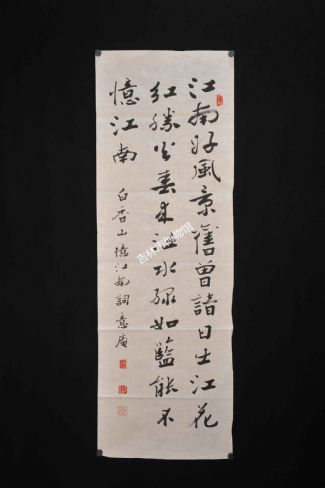 江南好風景舊曾諳日出江花
紅勝火春來江水綠如藍能不
憶江南
白香山憶江南詞意庵
吉林市博物馆